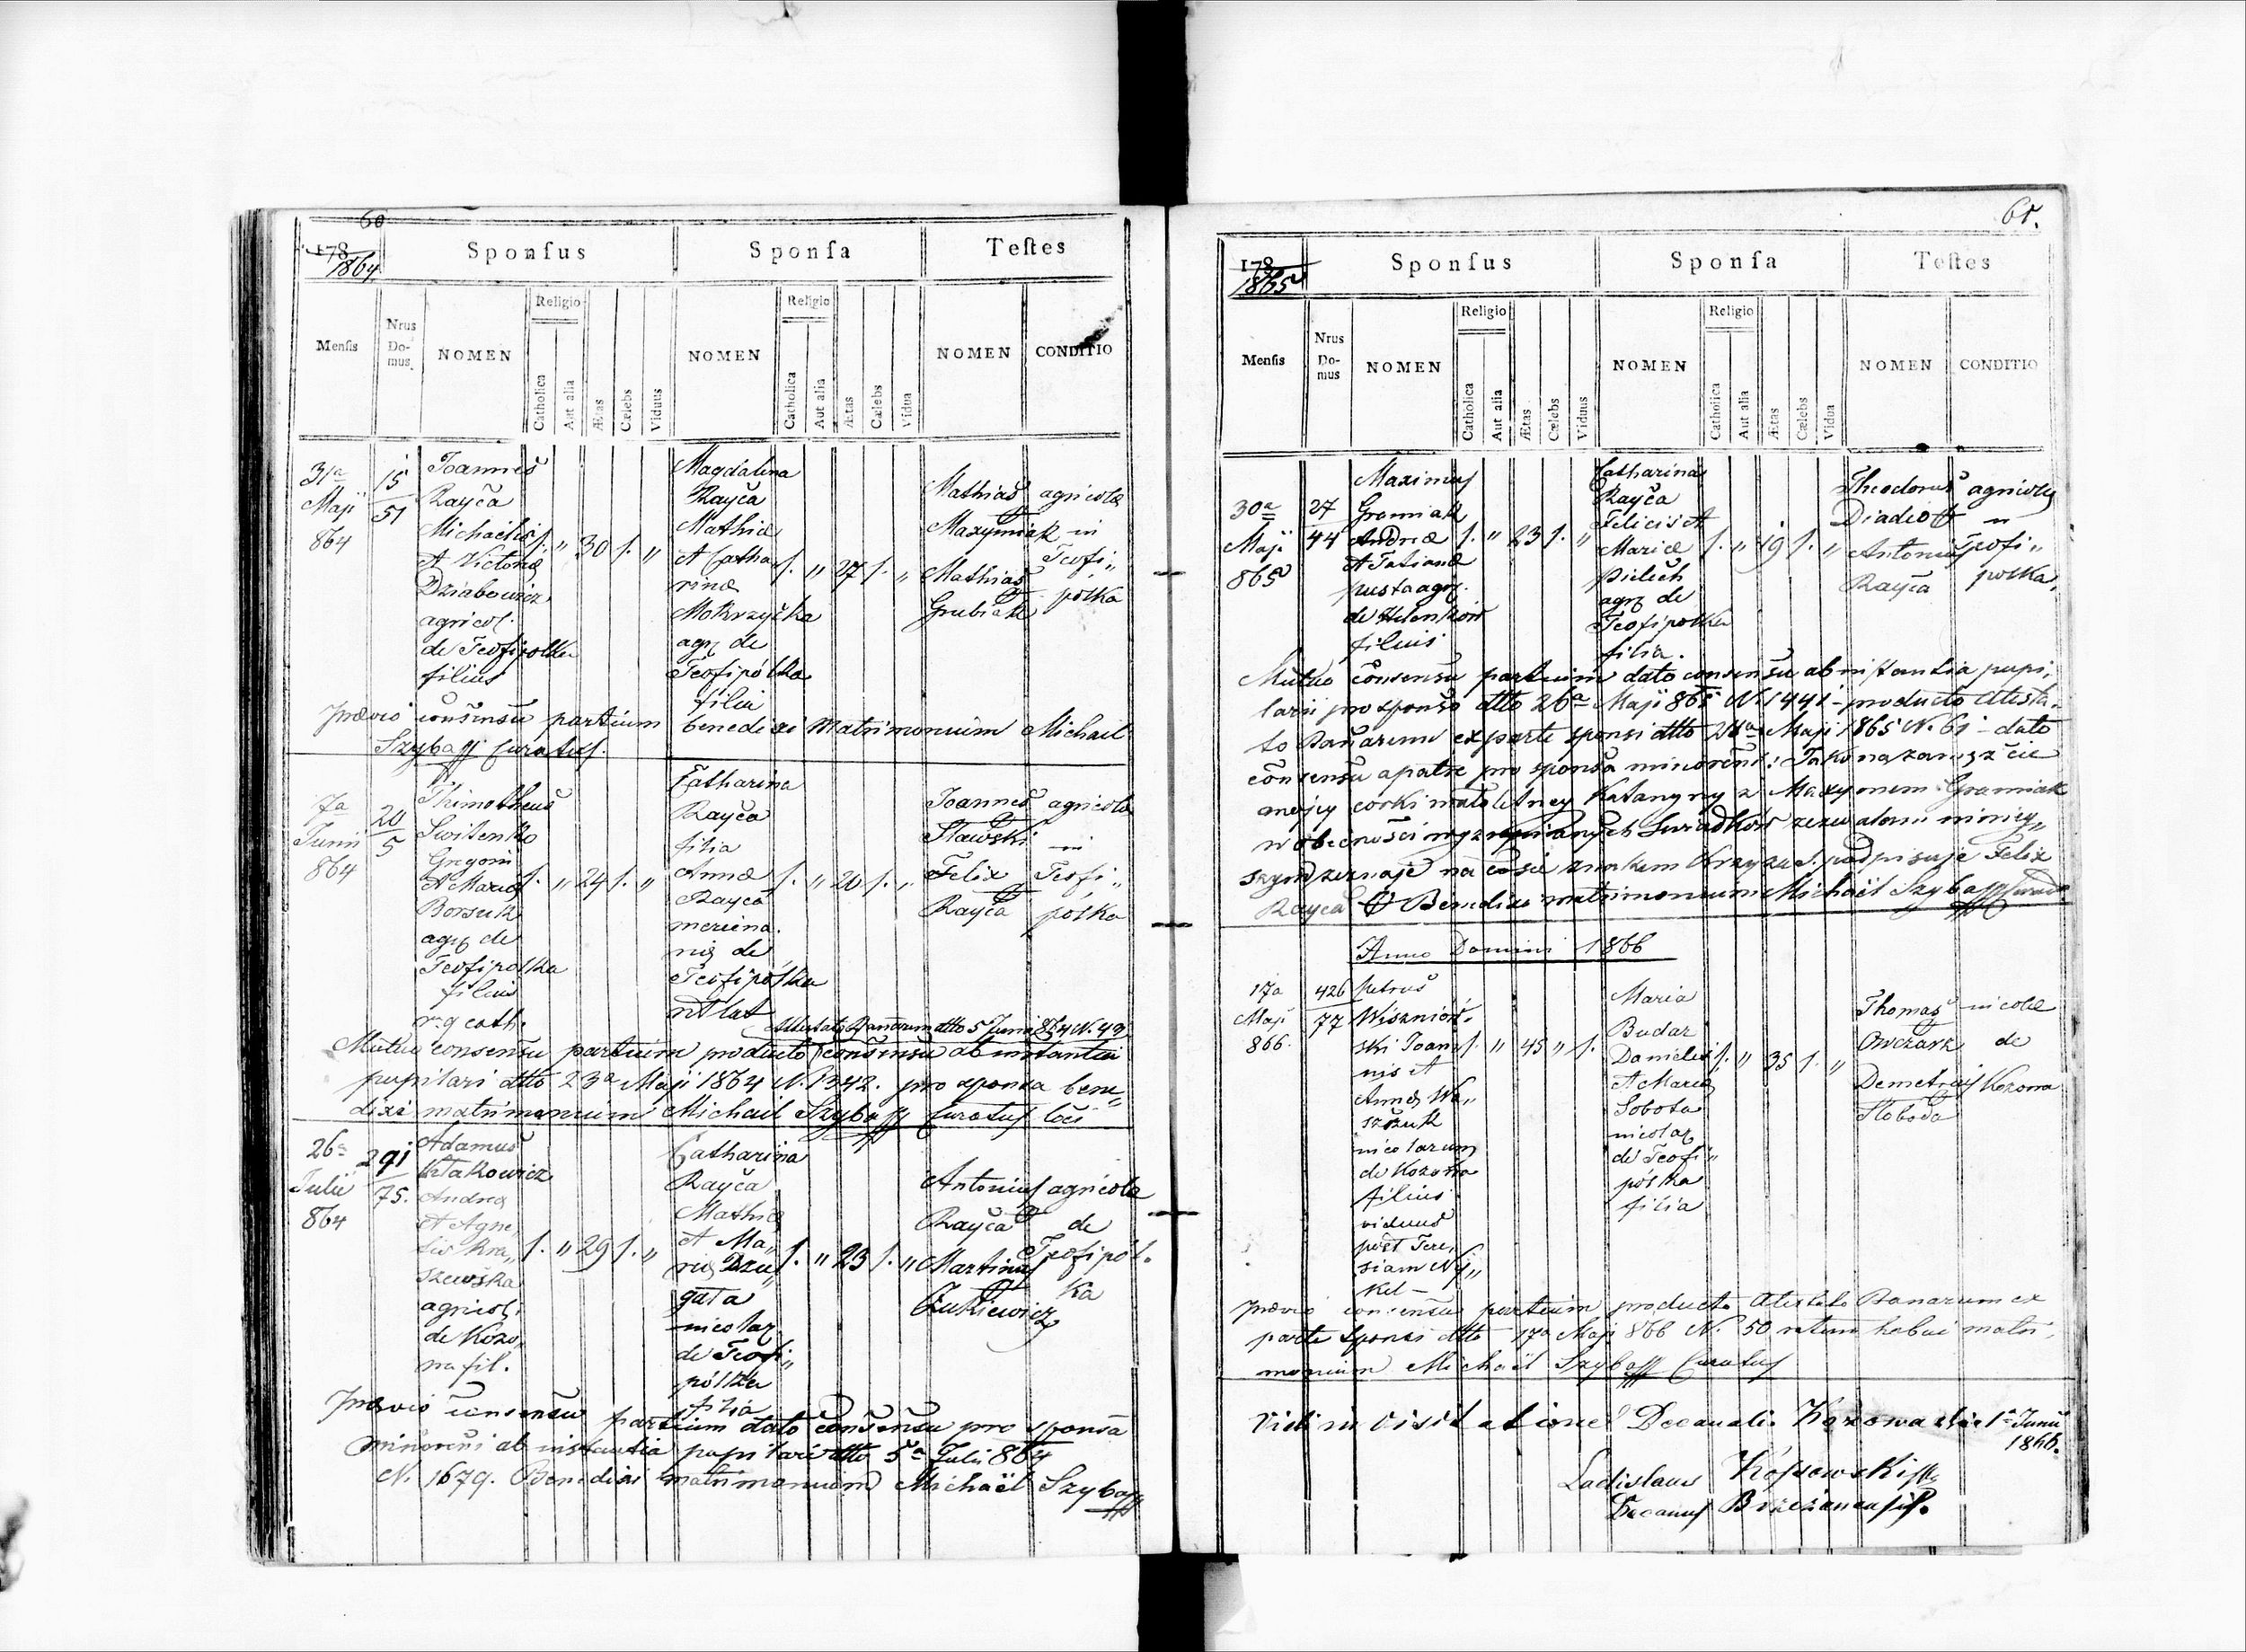 60
178
1864
Sponsus
Sponsa
Testes
Mensis
Nrus Domus
NOMEN
Religio
Catholica
Aut alia
Ætas
Cælebs
Viduus
NOMEN
Religio
Catholica
Aut alia
Ætas
Cælebs
Vidua
NOMEN
CONDITIO
31a
Maji
864
15
51
Joannes
Rayca
Michaelis
et Victoriæ
Dziabowicz
agricol.
de Teofipolka
filius
30
Magdalena
Rayca
Mathiæ
et Catha
rinæ
Mokrzycka
agr de
Teofipólka
filia
27
Mathias
Maxymiak
Mathias
Grubiak
agricolæ
in
Teofi„
pólka
Prævio consensu partium benedixi Matrimonium Michael
Szyba Curatus.
7a
Junii
864
20
5
Thimotheus
Switenko
Gregorii
et Mariæ
Borsuk
agr de
Teofipolka
filius
r. g. cath.
24
Catharina
Rayca
filia
Annæ
Rayca
de
Teofipólka
20
Joannes
Stawski
Felix
Rayca
agricolæ
in
Teofi„
polka
Attestato Bannorum dtto 5 Junii 864 N. 49
Mutuo consensu partium producto consensu ab instantia
pupilari dtto 23a Maji 1864 N. 1342. pro sponsa bene„
dixi matrimonium Michael Szyba Curatus loci
26a
Julii
864
291
75.
Adamus
Andreæ
et Agne„
tis Kra„
szewska
agricol.
de Kozo„
wa fil.
29
Catharina
Rayca
Mathiæ
et Ma„
riæ Dzu„
gała
nicolar
de Teofi„
pólka
filia
23
Antonius
Rayca
Martinus
Żukiewicz
agricola
de
Teofipól„
ka
Prævio consensu partium dato consensu pro sponsa
minoreni ab instantia pupilari dtto 5a Julii 864
N. 1679. Benedixi matrimonium Michaël Szyba
61.
178
1865
Sponsus
Sponsa
Testes
Mensis
Nrus Domus
NOMEN
Religio
Catholica
Aut alia
Ætas
Cælebs
Viduus
NOMEN
Religio
Catholica
Aut alia
Ætas
Cælebs
Vidua
NOMEN
CONDITIO
30a
Maji
865
27
44
Maximus
Gramiak
Andreæ
et Tatianæ
pusta agr.
de Helenków
filius
23
Catharina
Rayca
Felicis et
Mariæ
Pielech
agr de
Teofipolka
filia.
19
Theodorus
Antonius
Rayca
agricolæ
in
Teofi„
polka
Mutuo consensu partium dato consensu ab instantia pupi„
larii pro sponso dtto 26a Maji 865 N. 1441 - producto Atesta„
to Banarum ex parte sponsi dtto Maji 1865 N. 61 - dato
consensu a patre pro sponsa minoreni: Jako na zamęzcie
mojey corki małoletney Katarzyny z Maxymem Gramiak
w obecności wyzrzpisanych Swiadków zezwalam i niniey„
szym zeznaję na co się znakiem Krzyza S. podpisuję Felix
Rayca + Benedixi matrimonium Michaël Szyba
Anno Domini 1866
17a
Maji
866.
426
77
Petrus
Wiszniow„
ski Joan„
nis et
Annæ Wa„
szczuk
nicolarum
de Kozowa
filius
viduus
post Tere„
siam
45
Maria
Budar
Danielis
et Mariæ
Sobota
nicolar
de Teofi„
pólka
filia
35
Thomas
Owczark
Demetrius
Słoboda
nicolæ
de
Kozowa
Prævio consensu partium producto Atestato Banarum ex
parte Sponsi dtto 17a Maji 866 N. 50 ratum habui matri„
monium Michaël Szyba Curatus
Vidi in visitatione Decanali Kozowa die 1a Junii
1866.
Ladislaus
Decanus Brzezanensis.